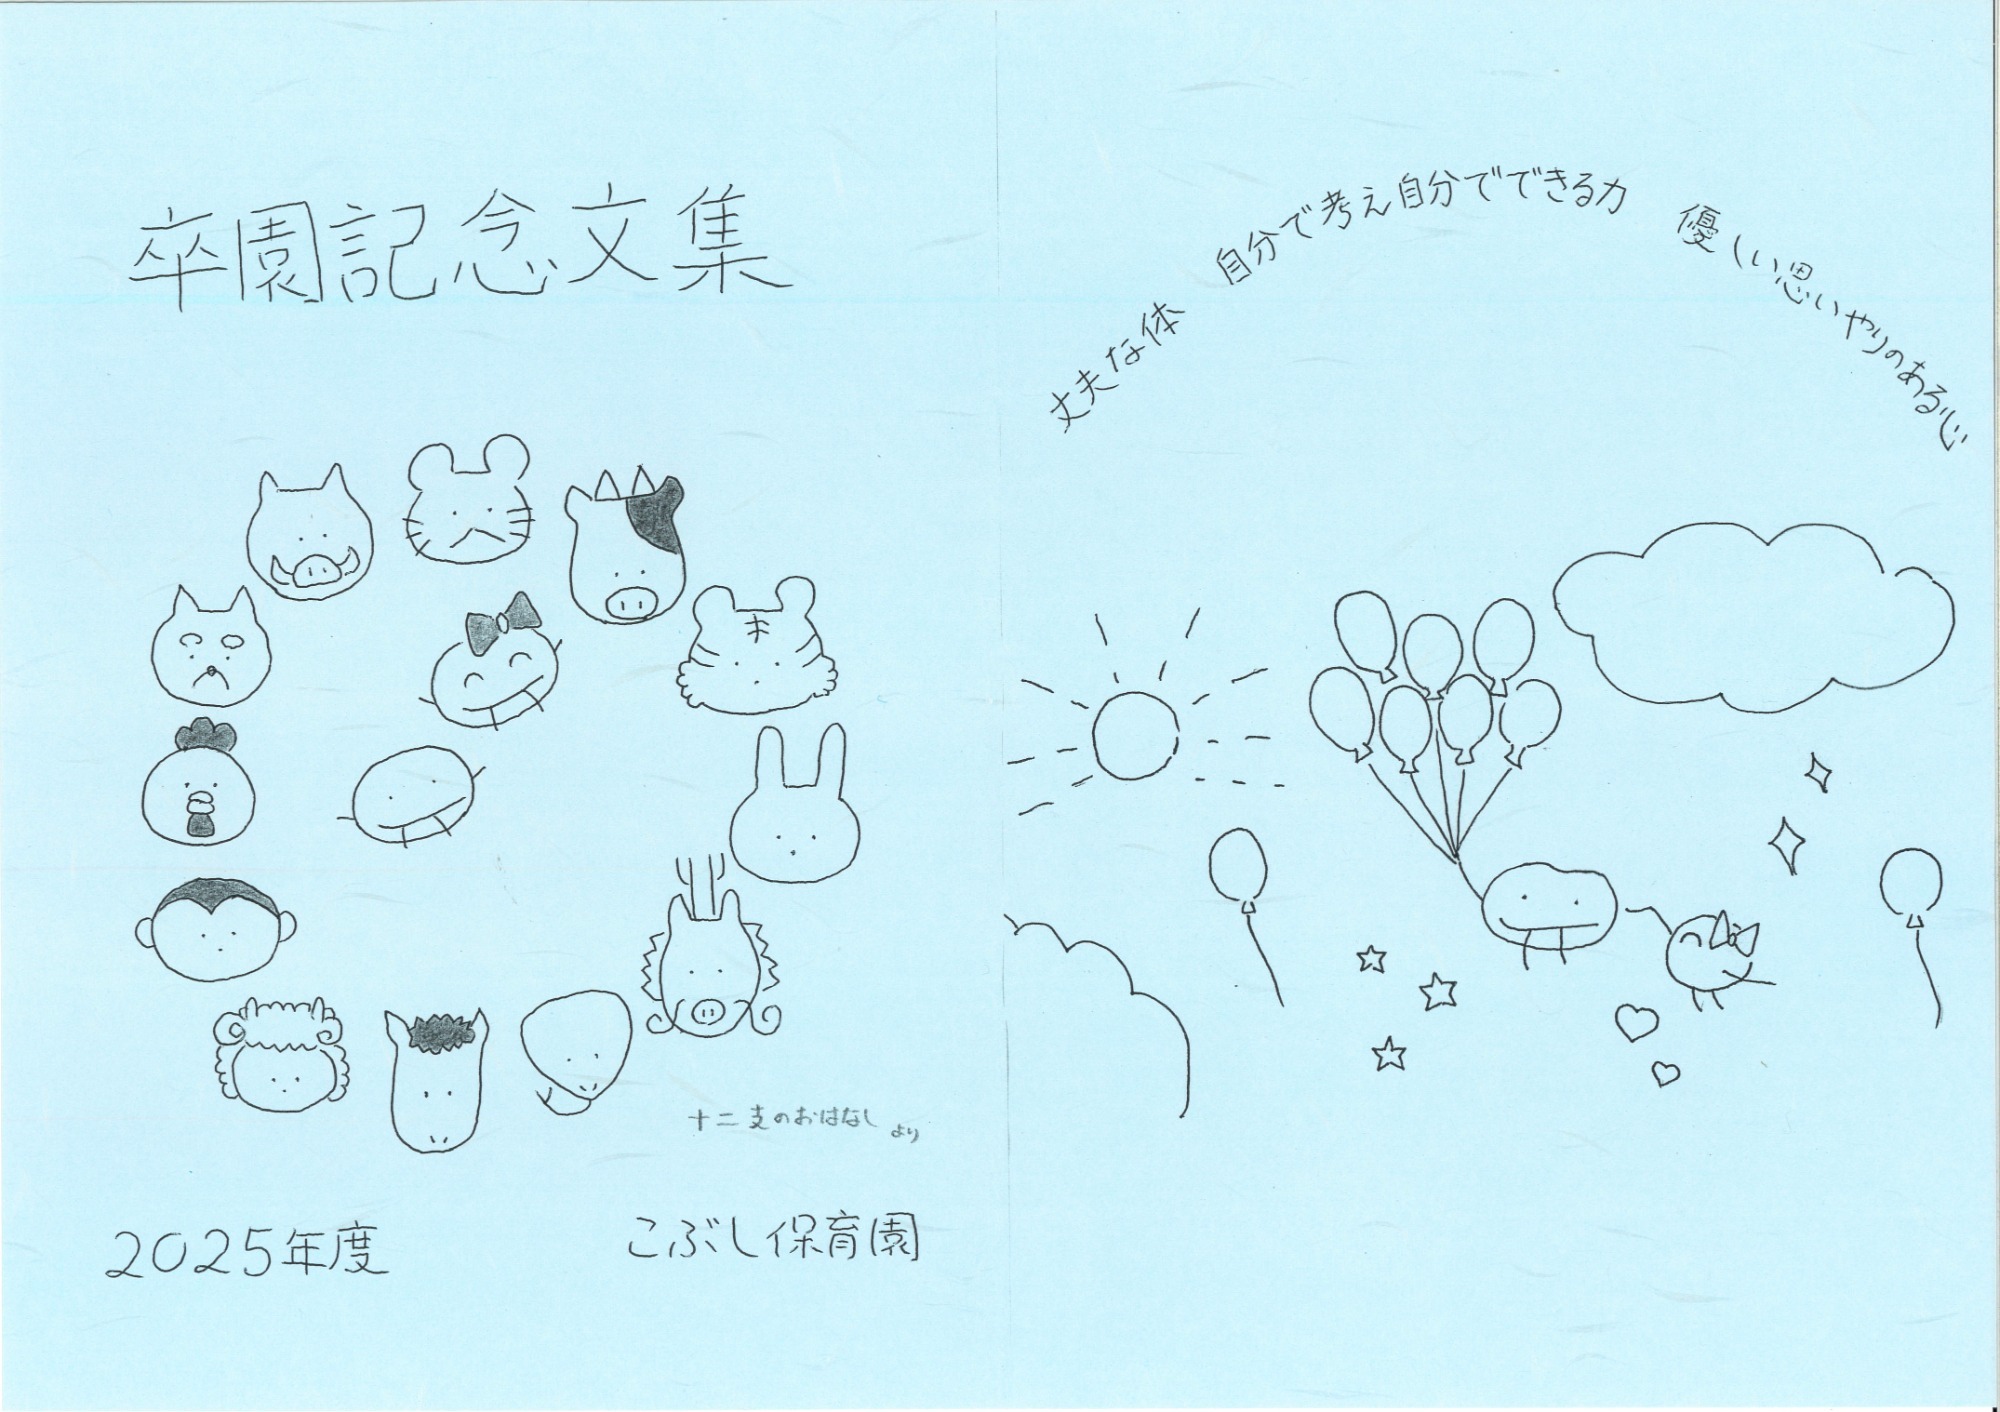 卒園記念文集
十二支のおはなし より
2025年度
こぶし保育園
丈夫な体 自分で考え自分でできる力 優しい思いやりのある心